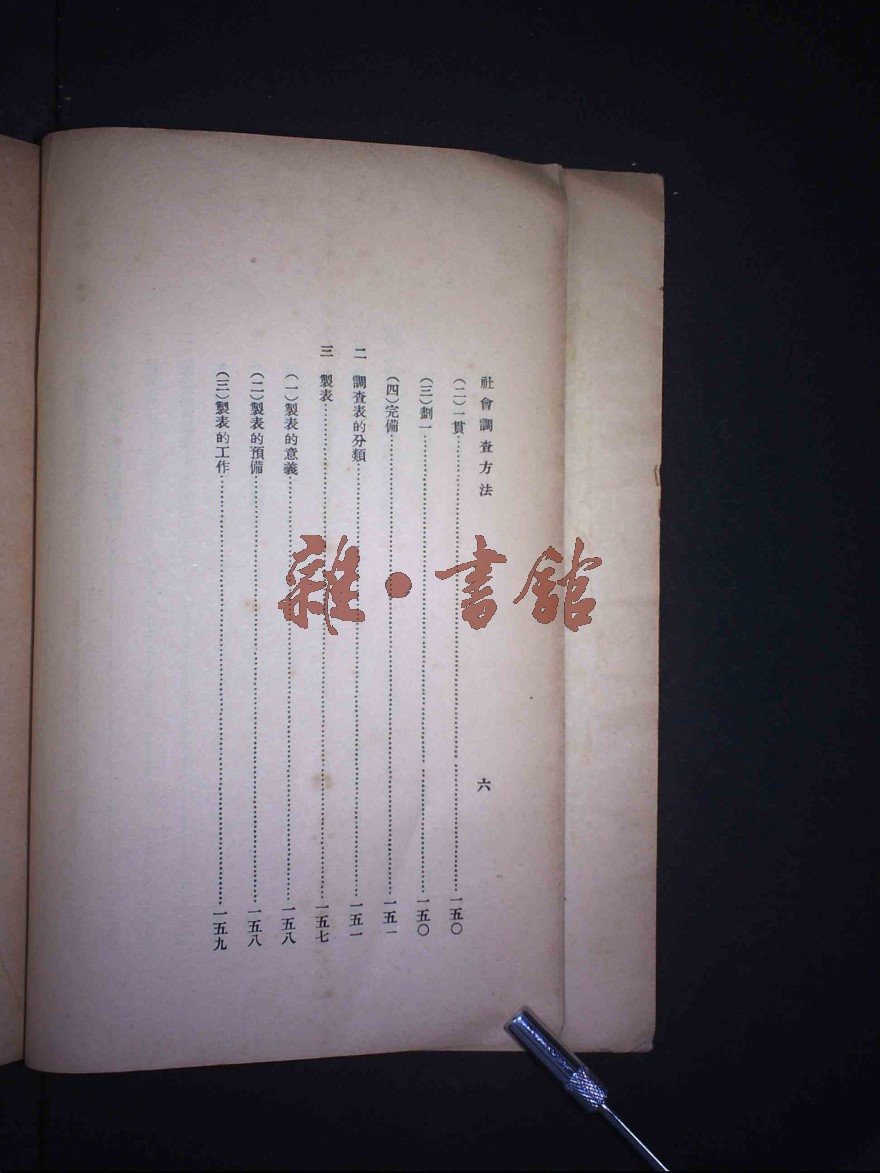 社會調查方法 六
(二)一貫……一五〇
(三)劃一……一五〇
(四)完備……一五一
二 調查表的分類……一五一
三 製表……一五七
(一)製表的意義……一五八
(二)製表的預備……一五八
(三)製表的工作……一五九
雜·書館